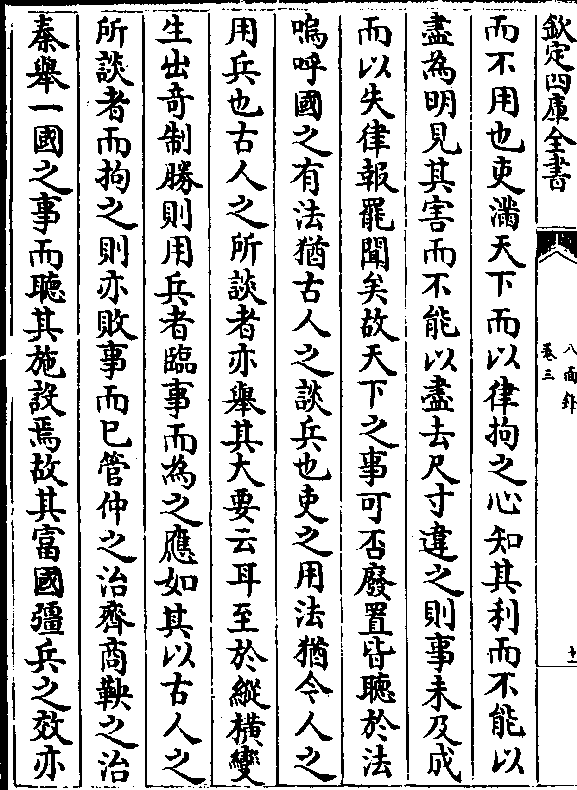 欽定四庫全書
八面鋒
卷三
十一
而不用也吏滿天下而以律拘之心知其利而不能以
盡為明見其害而不能以盡去尺寸違之則事未及成
而以失律報罷聞矣故天下之事可否廢置皆聽於法
嗚呼國之有法猶古人之談兵也吏之用法猶今人之
用兵也古人之所談者亦舉其大要云耳至於縱橫變
生出奇制勝則用兵者臨事而為之應如其以古人之
所談者而拘之則亦敗事而已管仲之治齊商鞅之治
秦舉一國之事而聽其施設焉故其富國彊兵之效亦